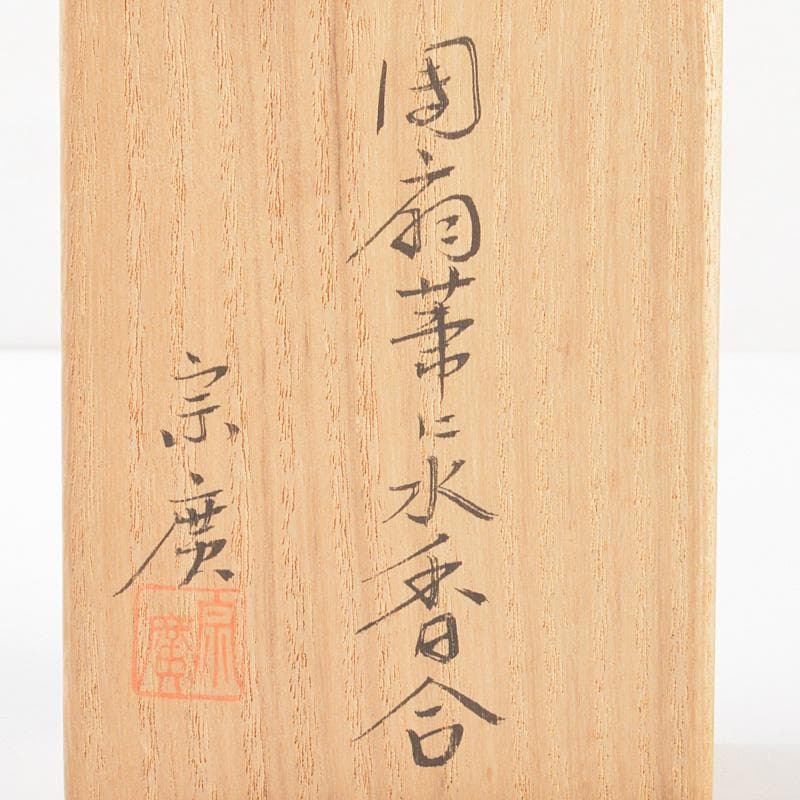 団扇葦に水香合
宗廣
宗廣